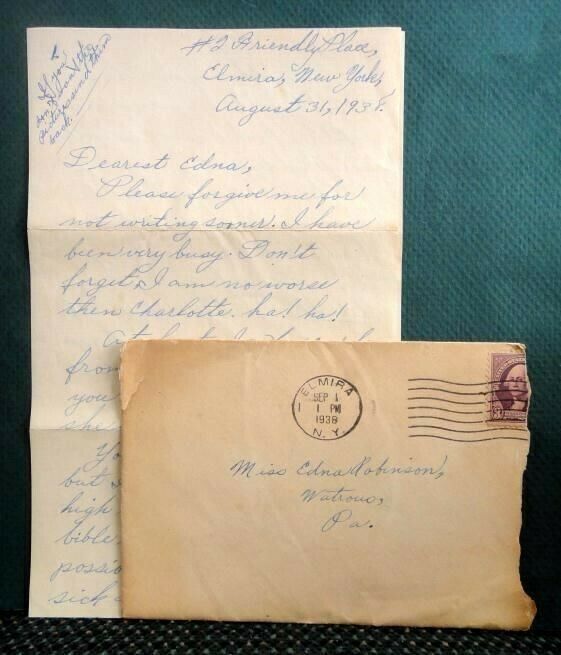 #2 Friendly Place,
Elmira, New York,
August 31, 1938.
If you
don't want the
pictures send them
back.
Dearest Edna,
Please forgive me for
not writing sooner. I have
been very busy. Don't
forget, I am no worse
then Charlotte. ha! ha!
from
you
she
Yo
but
high
bible
possib
sick
ELMIRA
SEP 1
1 PM
1938
N.Y.
Miss Edna Robinson,
Watrous,
Pa.